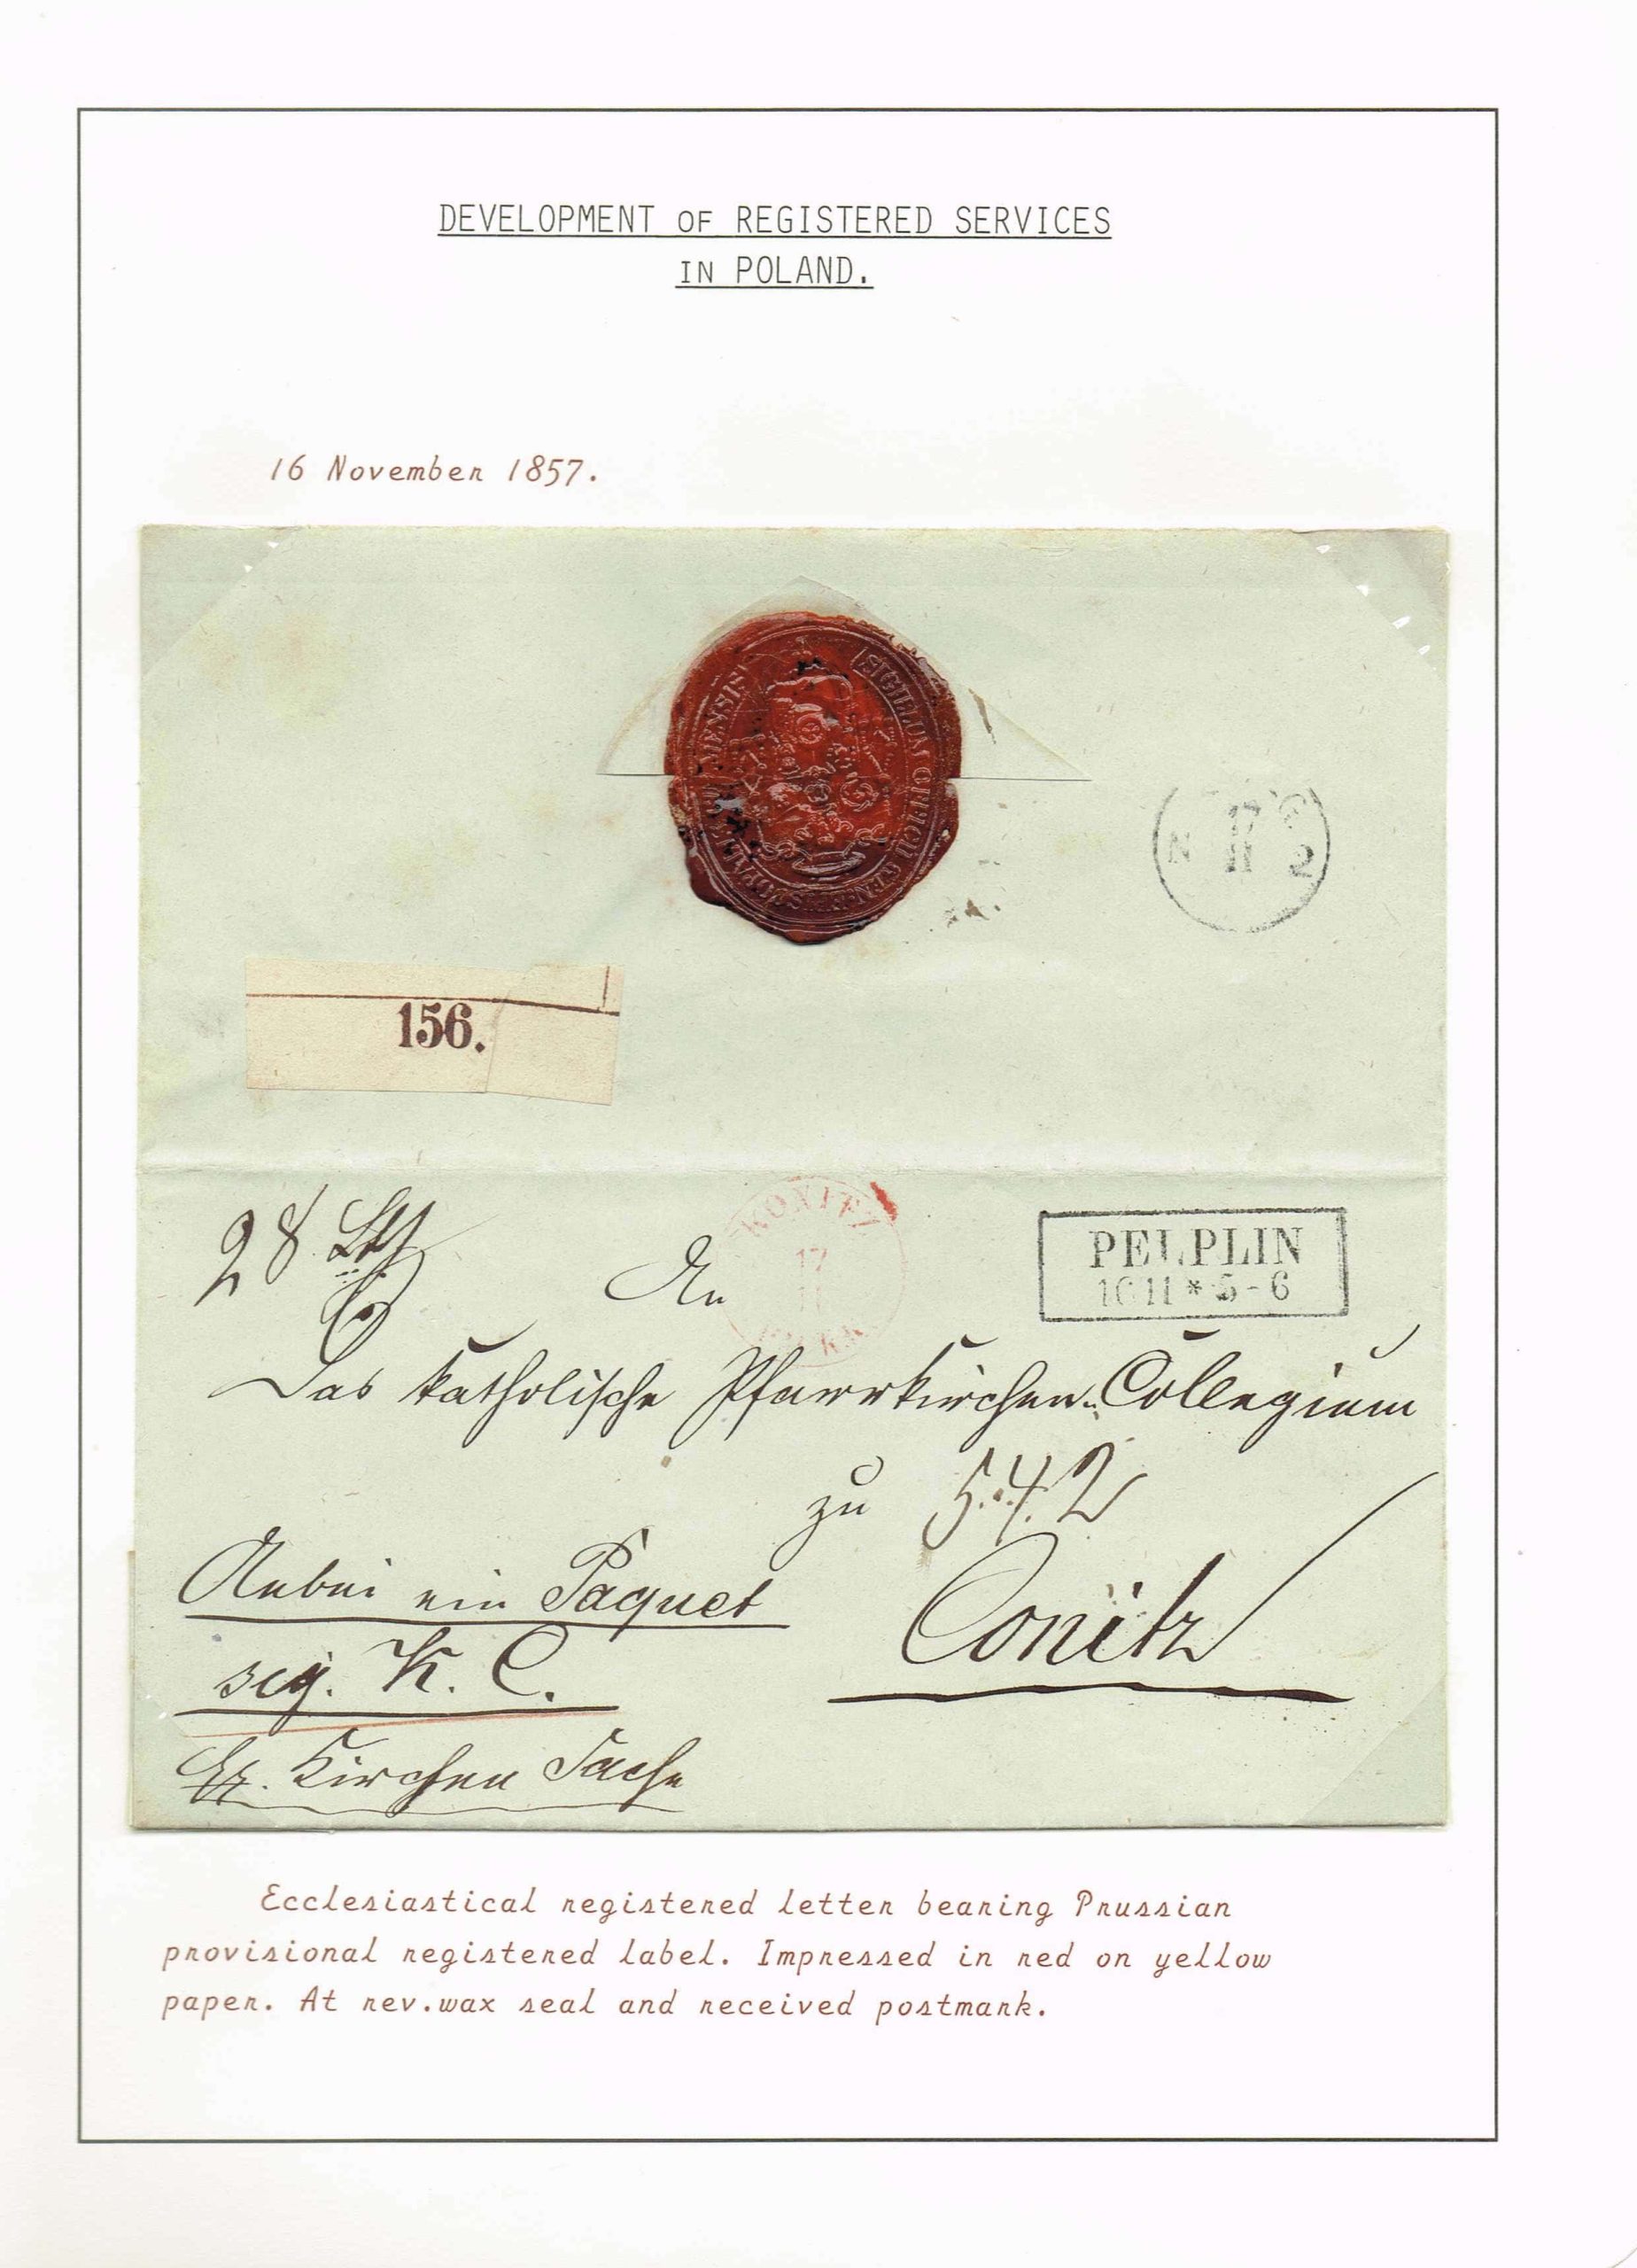 DEVELOPMENT OF REGISTERED SERVICES
IN POLAND.
16 November 1857.
SIGILLUM OFFICII GENERALIS
17
11
N 2
156.
28 Lth
KONITZ
17
11
PELPLIN
16 11 * 5 - 6
An
Das katholische Pfarrkirchen-Collegium
zu 5.4.2
Conitz
Anbei ein Paquet
sig. K. C.
Kirchen Sache
Ecclesiastical registered letter bearing Prussian
provisional registered label. Impressed in red on yellow
paper. At rev.wax seal and received postmark.